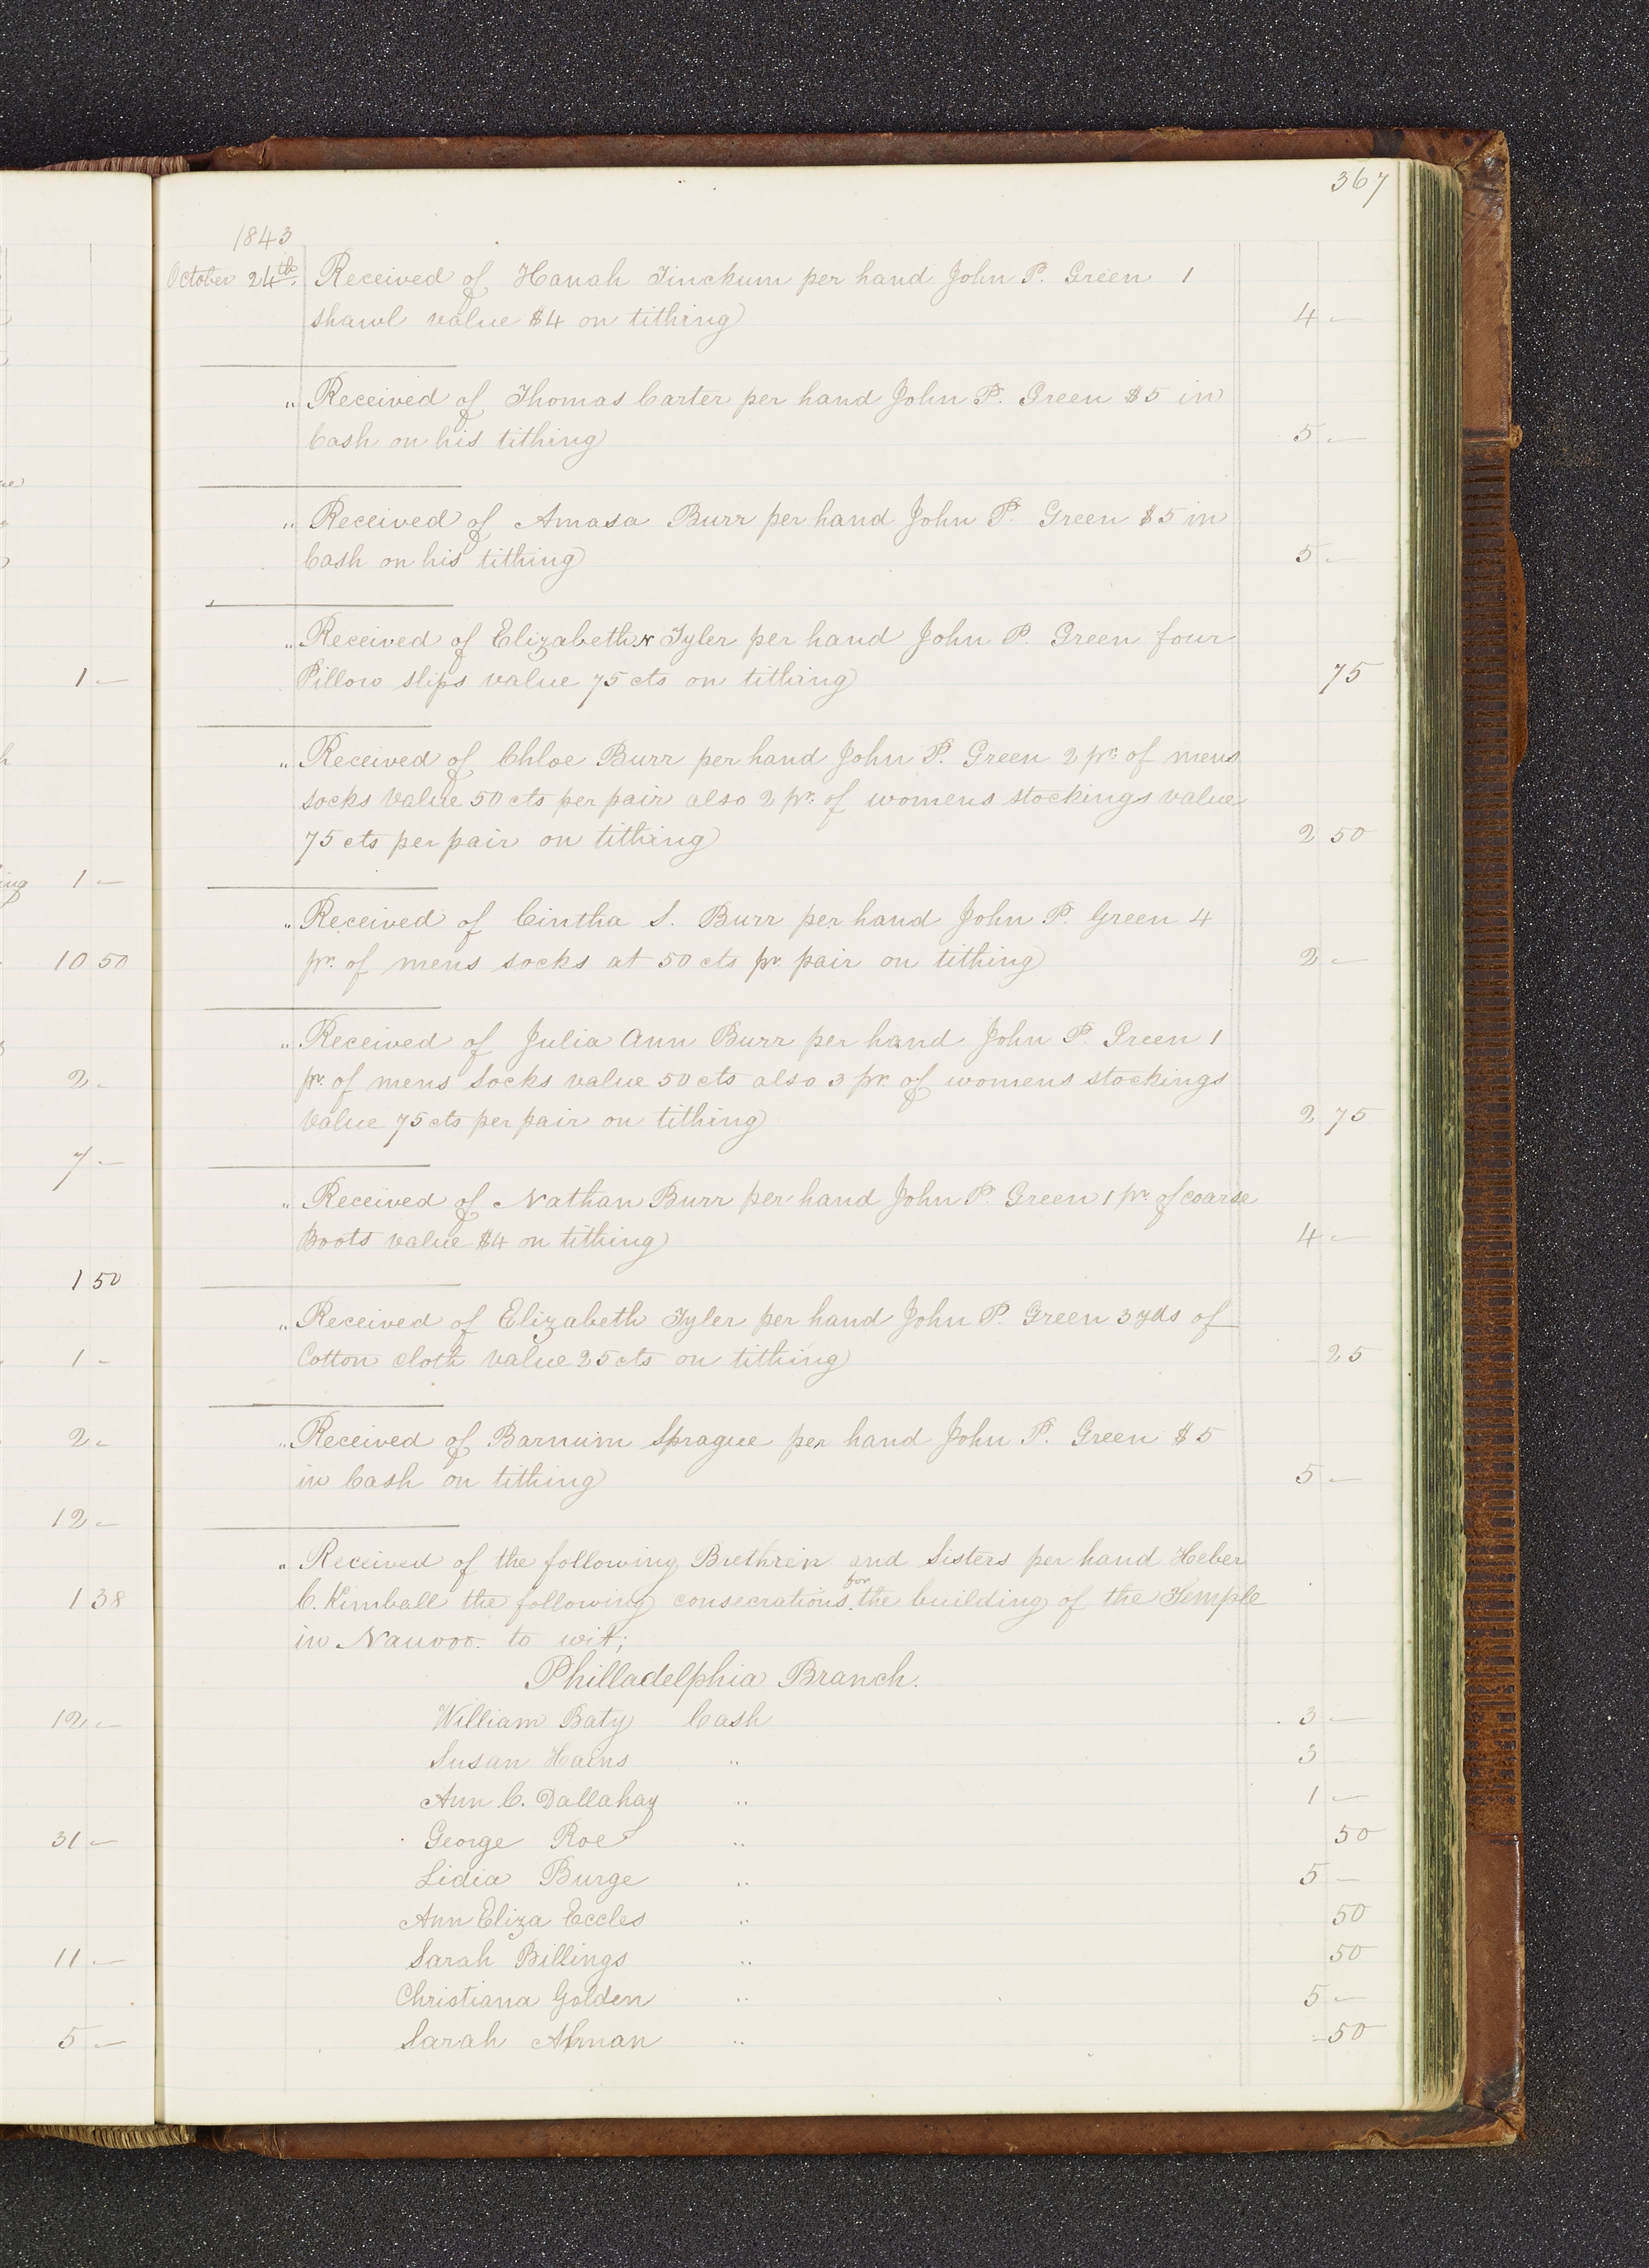 367
1843
October 24th. Received of Hanah Tinckum per hand John P. Green 1
shawl value $4 on tithing 4 —
" Received of Thomas Carter per hand John P. Green $5 in
Cash on his tithing 5 —
" Received of Amasa Burr per hand John P. Green $5 in
Cash on his tithing 5 —
" Received of Elizabeth Tyler per hand John P. Green four
Pillow slips value 75 cts on tithing 75
" Received of Chloe Burr per hand John P. Green 2 pr. of mens
socks value 50 cts per pair also 2 pr. of womens stockings value
75 cts per pair on tithing 2 50
" Received of Cintha S. Burr per hand John P. Green 4
pr. of mens socks at 50 cts pr. pair on tithing 2 —
" Received of Julia Ann Burr per hand John P. Green 1
pr. of mens socks value 50 cts also 3 pr. of womens stockings
value 75 cts per pair on tithing 2 75
" Received of Nathan Burr per hand John P. Green 1 pr. of coarse
Boots value $4 on tithing 4 —
" Received of Elizabeth Tyler per hand John P. Green 3 yds of
Cotton cloth value 25 cts on tithing 25
" Received of Barnum Sprague per hand John P. Green $5
in Cash on tithing 5 —
" Received of the following Brethren and Sisters per hand Heber
C. Kimball the following consecrations for the building of the Temple
in Nauvoo. to wit;
Philladelphia Branch.
William Baty Cash 3 —
Susan Hains " 3
Ann C. Dallahay " 1 —
George Roe " 50
Lidia Burge " 5 —
Ann Eliza Eccles " 50
Sarah Billings " 50
Christiana Golden " 5 —
Sarah " 50
1 —
1 —
10 50
2 -
7 —
1 50
1 -
2 -
12 -
1 38
12 —
31 —
11 —
5 —